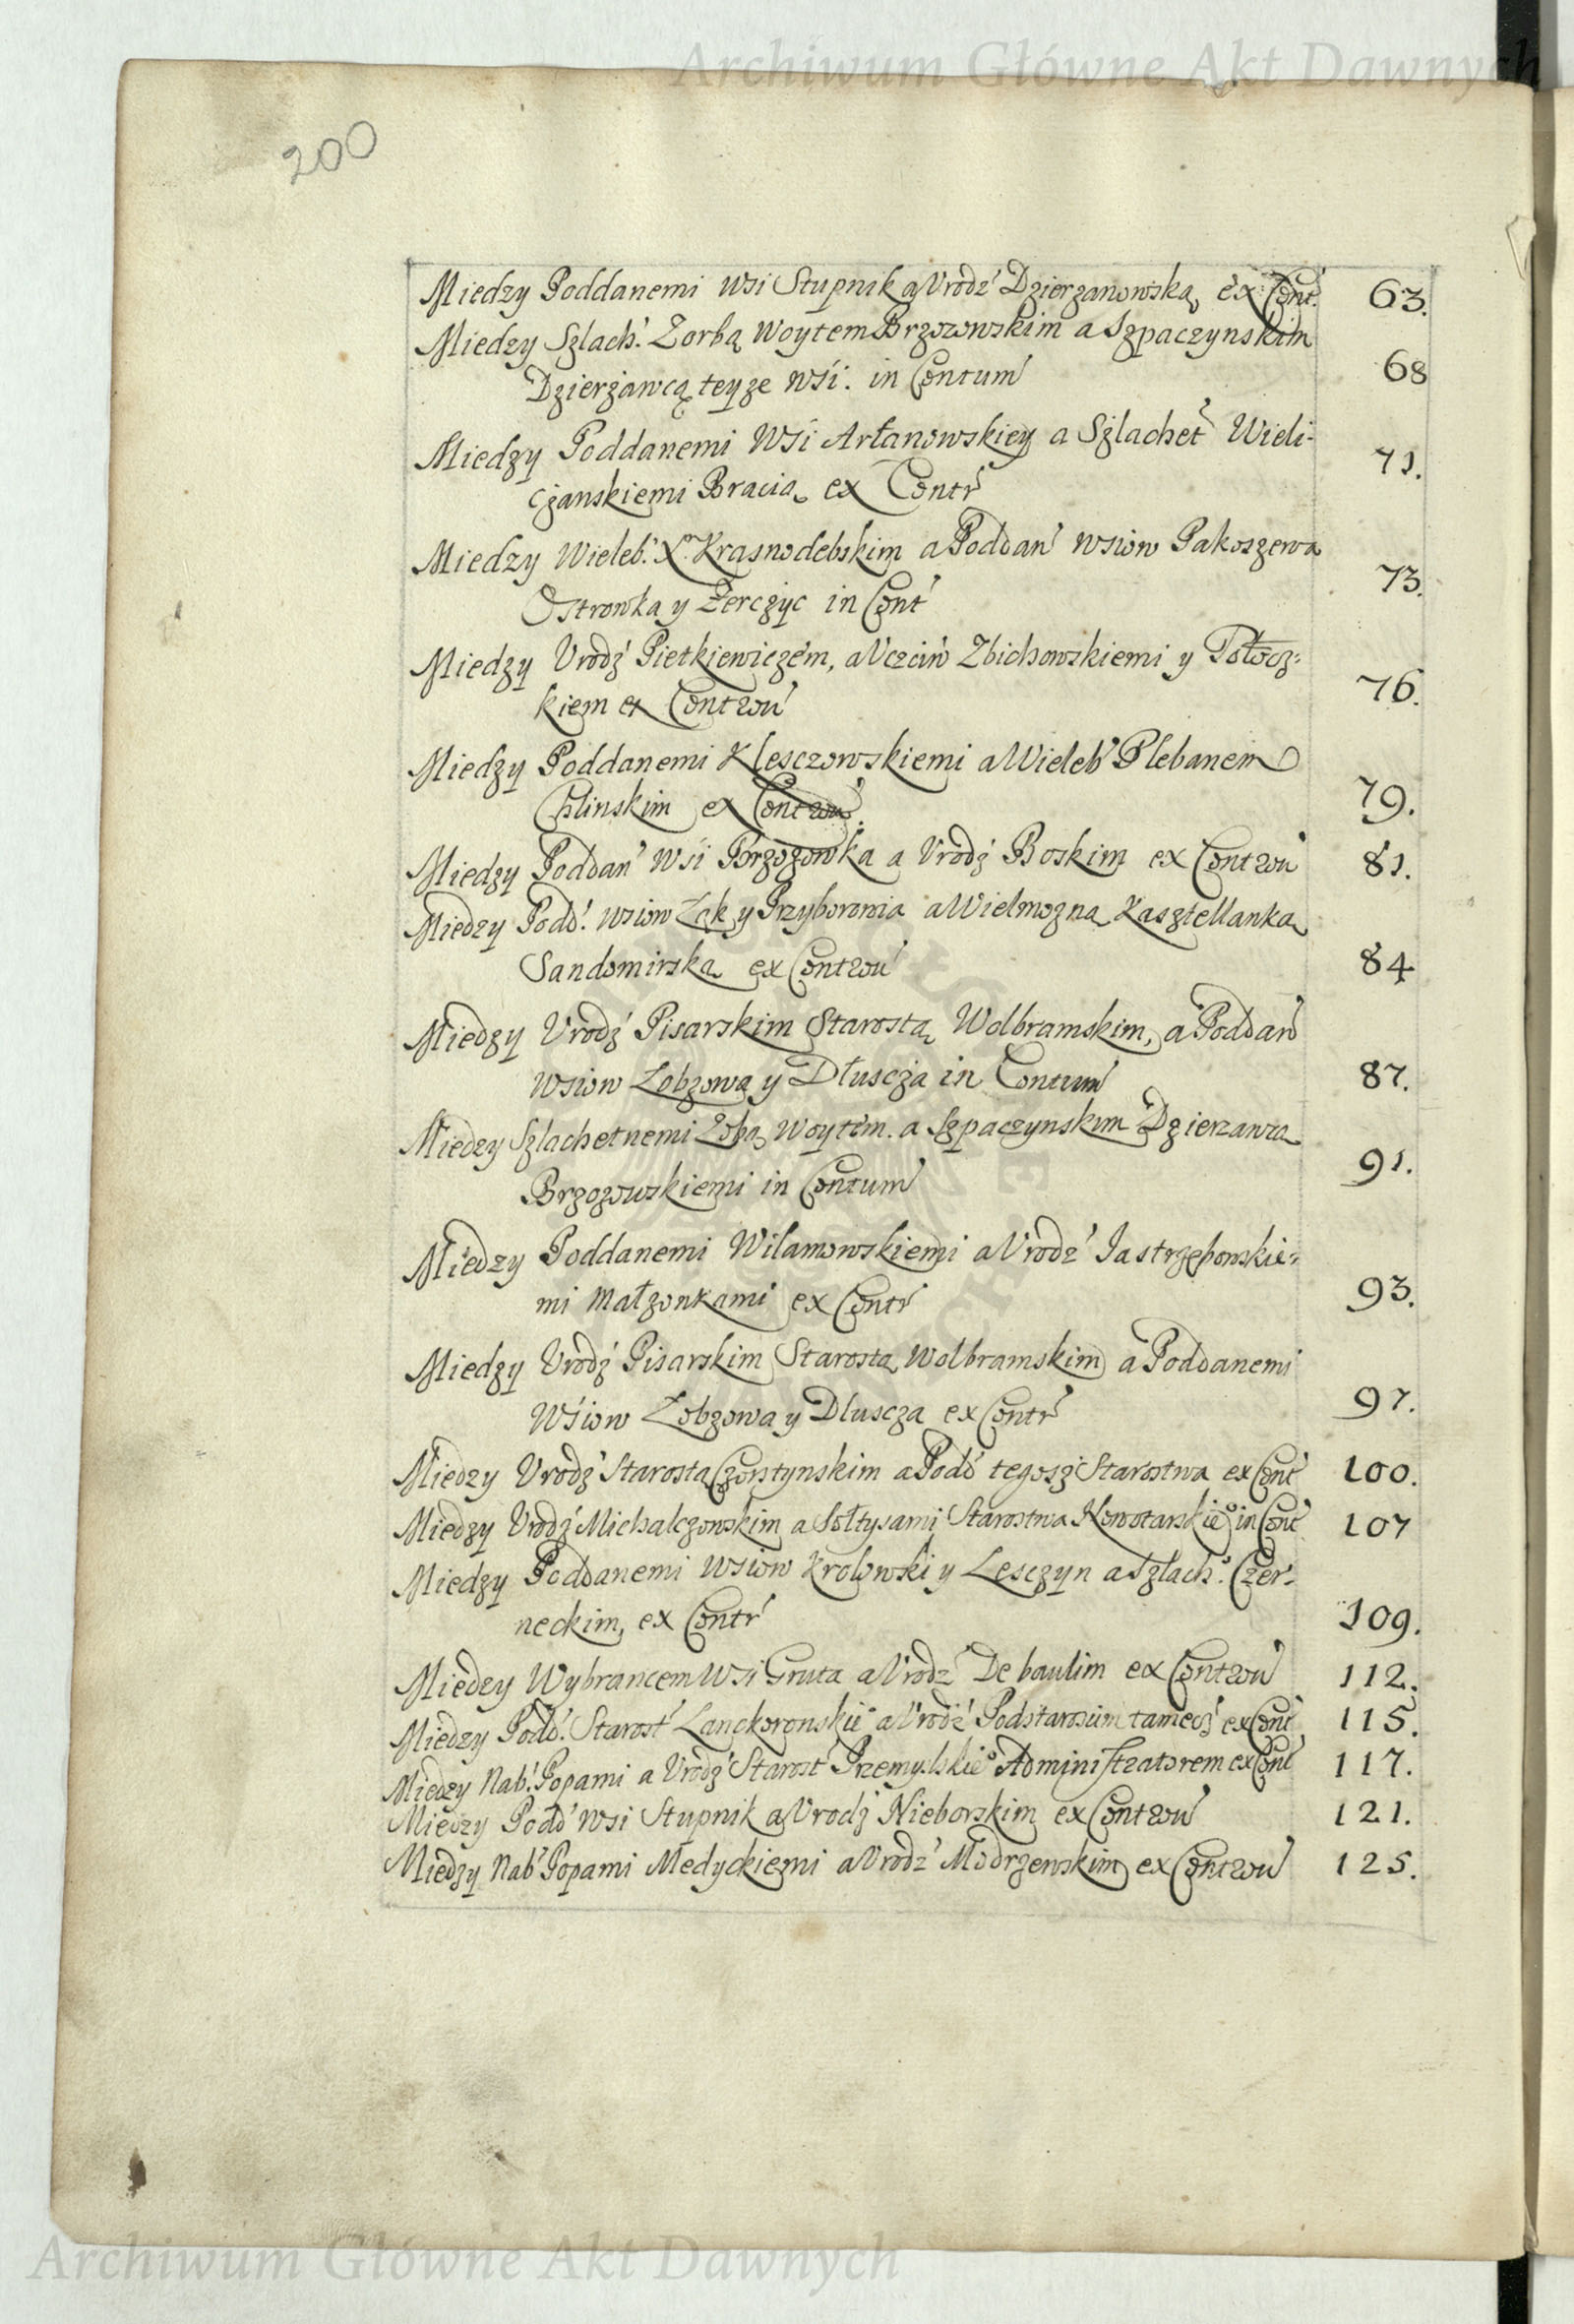 Archiwum Główne Akt Dawnych
200
Miedzy Poddanemi Wsi Stupnik a Vrodź Dzierzanowską ex Cont. 63.
Miedzy Szlach. Zorbą Woytem Brzozowskim a Szpaczynskim
Dzierzawcą teyze wsi. in Contum 68
Miedzy Poddanemi Wsi Arłanowskiey a Szlachet Wieli-
czanskiemi Bracia ex Contr 71.
Miedzy Wieleb. X. Krasnodebskim a Poddan wsiow Pakoszewa
Ostrowka y Zerczyc in Cont 73.
Miedzy Vrodz Pietkiewiczem, a Vczciw Zbichowskiemi y Potocz-
kiem ex Controu 76.
Miedzy Poddanemi Klesczowskiemi a Wieleb Plebanem
Chlinskim ex Controu. 79.
Miedzy Poddan wsi Brzozowka a Vrodz Boskim ex Controu 81.
Miedzy Podd. wsiow Łąk y Przyborowia a Wielmozna Kasztellanka
Sandomirska ex Controu 84
Miedzy Vrodz Pisarskim Starosta Wolbramskim, a Poddan
wsiow Lobzowa y Dłuscza in Contum 87.
Miedzy Szlachetnemi Woytem. a Szpaczynskim Dzierzawca
Brzozowskiemi in Contum 91.
Miedzy Poddanemi Wilamowskiemi a Vrodz Jastrzębowskie-
mi Małzonkami ex Contr 93.
Miedzy Vrodz Pisarskim Starosta Wolbramskim a Poddanemi
Wsiow Łobzowa y Dluscza ex Contr 97.
Miedzy Vrodz Starosta Czorstynskim a Podd tegosz Starostwa ex Cont 100.
Miedzy Vrodz Michalczowskim a Sołtysami Starostwa Nowotarskieº in Cont 107
Miedzy Poddanemi wsiow Krolowski y Lesczyn a Szlach. Czer-
neckim, ex Contr 109.
Miedzy Wybrancem Wsi Gruta a Vrodz De baulim ex Controu 112.
Miedzy Podd. Starost Lanckoronskie a Vrodz Podstaroscim tameoz ex Cont 115.
Miedzy Nab. Popami a Vrodz Starost Przemyslskieº Administratorem ex Cont 117.
Miedzy Podd wsi Stupnik a Vrodz Nieborskim ex Controu 121.
Miedzy Nab Popami Medyckiemi a Vrodz Modrzewskim ex Controu 125.
Archiwum Główne Akt Dawnych